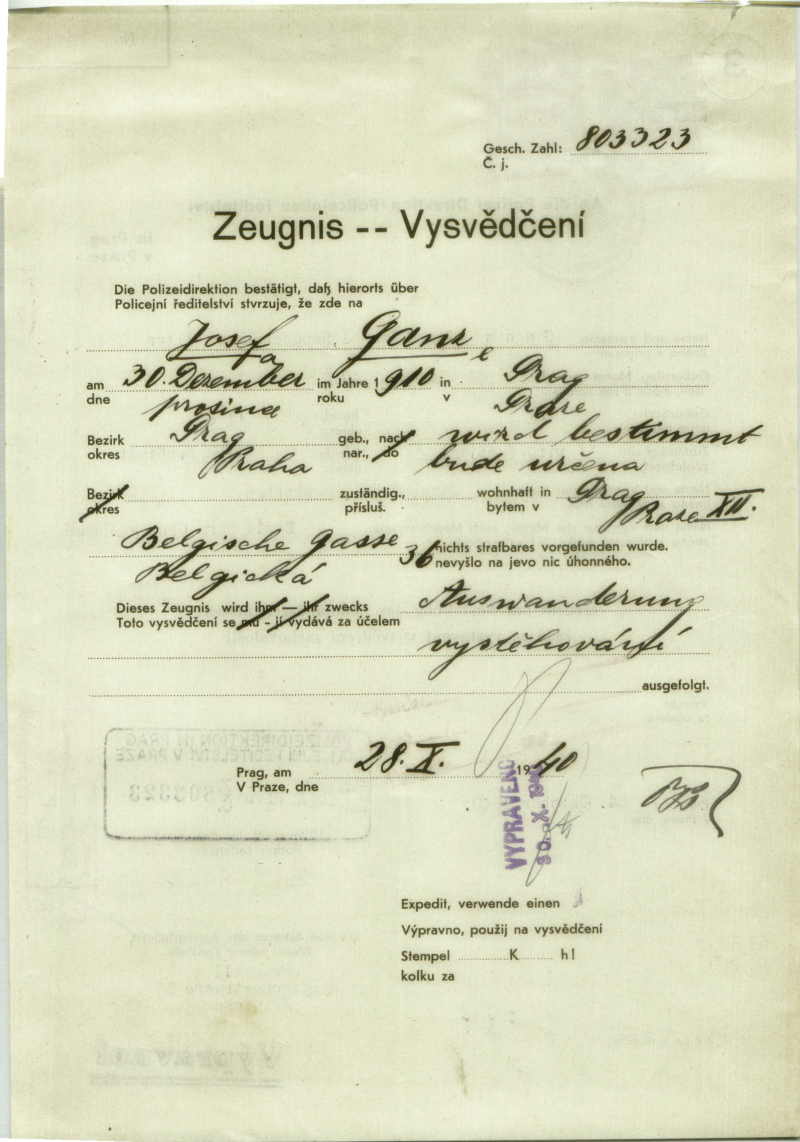 Gesch. Zahl: 803323
Č. j.
Zeugnis -- Vysvědčení
Die Polizeidirektion bestätigt, daß hierorts über
Policejní ředitelství stvrzuje, že zde na
Josef Ganz
a e
am 30. Dezember im Jahre 1910 in Prag
dne prosince roku v Praze
Bezirk Prag geb., nach wird bestimmt
okres Praha nar., do bude určena
Bezirk zuständig., wohnhaft in Prag
okres přísluš. bytem v Praze XII.
Belgische Gasse 36 nichts strafbares vorgefunden wurde.
Belgická nevyšlo na jevo nic úhonného.
Dieses Zeugnis wird ihm — ihr zwecks Auswanderung
Toto vysvědčení se mu - jí vydává za účelem
vystěhování
ausgefolgt.
Prag, am 28. X. 1940
V Praze, dne
VYPRAVENO
30. X. 1940
Expedit, verwende einen
Výpravno, použij na vysvědčení
Stempel K h
kolku za